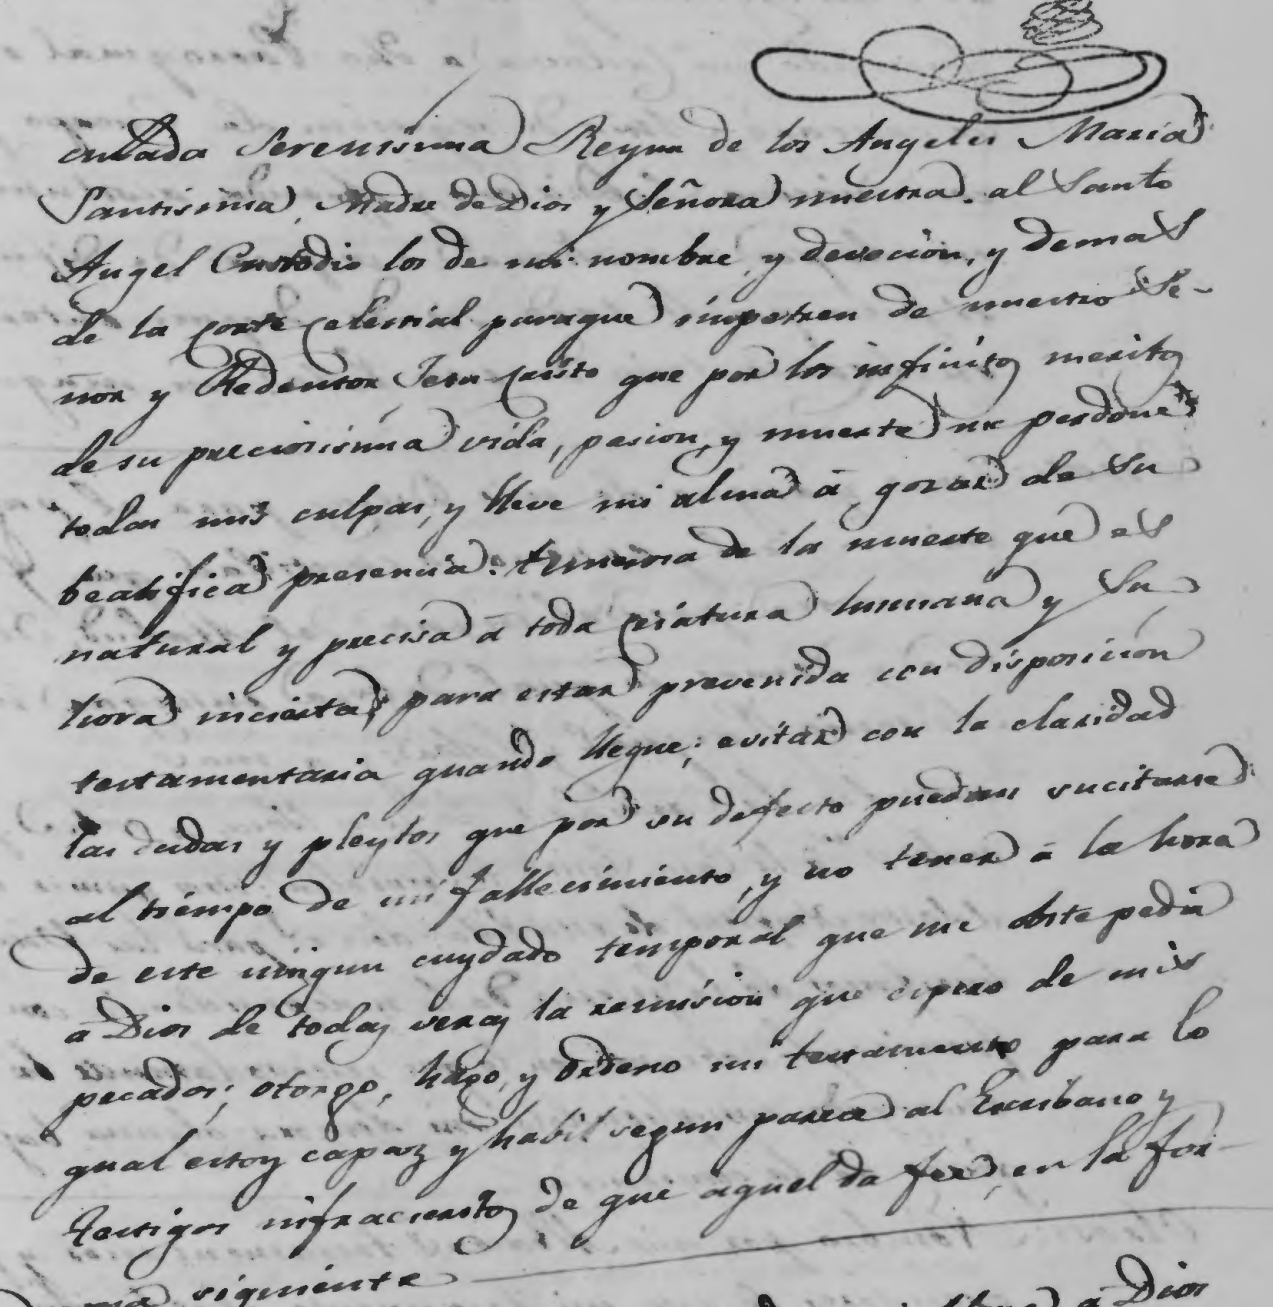 culada Serenisima Reyna de los Angeles Maria
Santisima, Madre de Dios y Señora nuestra. al Santo
Angel Custodio los de mi nombre, y devocion, y demas
de la corte celestial paraque impetren de nuestro Se-
ñor y Redentor Jesu-Cristo que por los infinitos meritos
de su preciosisima vida, pasion, y muerte me perdone
todas mis culpas, y lleve mi alma á gozar de su
beatifica presencia. temerosa de la muerte que es
natural y precisa á toda criatura humana y su
hora incierta, para estar prevenida con disposicion
testamentaria quando llegue; evitar con la claridad
las dudas y pleytos que por su defecto puedan sucitarse
al tiempo de mi fallecimiento, y no tener á la hora
de este ningun cuydado temporal que me obste pedir
á Dios de todas veras la remision que espero de mis
pecados; otorgo, hago, y ordeno mi testamento para lo
qual estoy capaz y habil segun parece al Escribano y
testigos infracscritos de que aquel da fee, en la for-
ma siguiente
á Dios